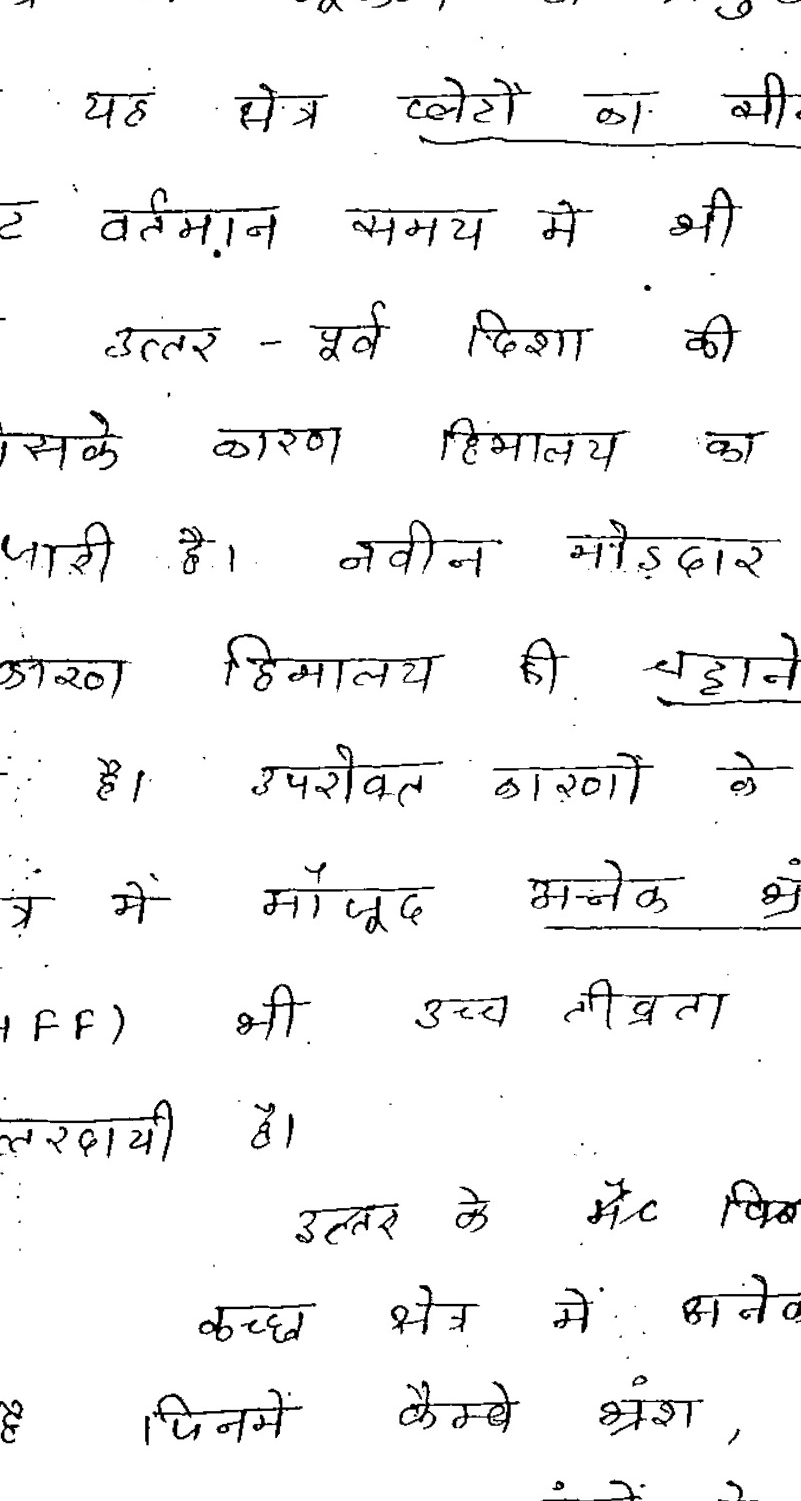 यह क्षेत्र प्लेटों का
वर्तमान समय में भी
उत्तर - पूर्व दिशा की
कारण हिमालय का
जारी है। नवीन मोड़दार
कारण हिमालय की चट्टाने
है। उपरोक्त कारणों के
में मौजूद अनेक
FF) भी उच्च तीव्रता
है।
उत्तर के
कच्छ क्षेत्र में
है जिनमें कैम्बे भ्रंश,